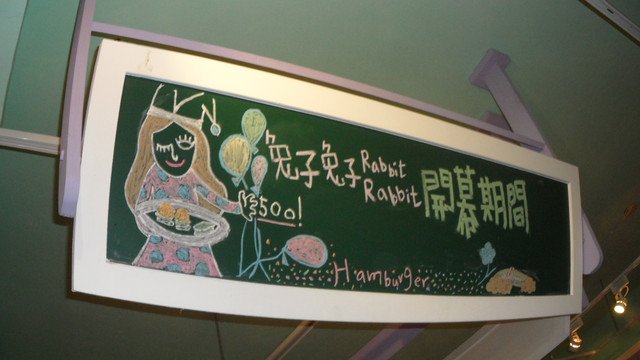 兔子兔子 Rabbit Rabbit 開幕期間
500!
Hamburger